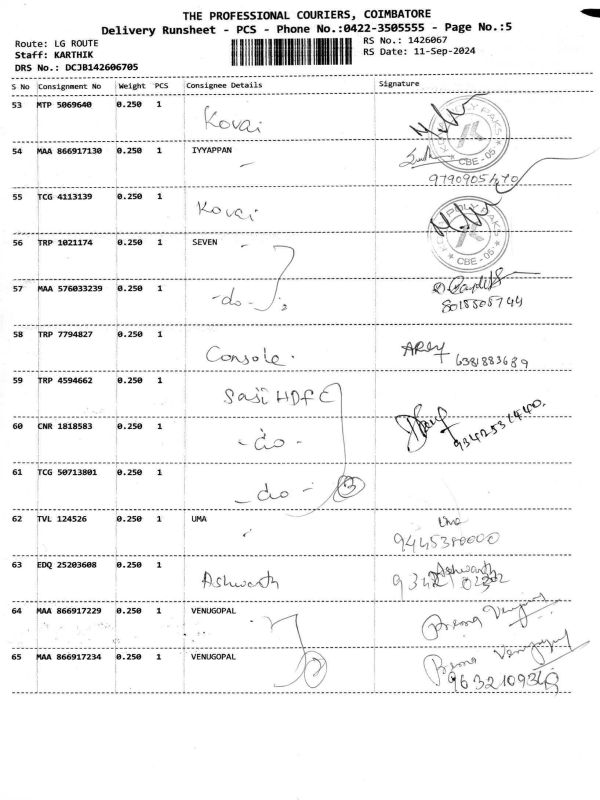 THE PROFESSIONAL COURIERS, COIMBATORE
Delivery Runsheet - PCS - Phone No.:0422-3505555 - Page No.:5
Route: LG ROUTE
Staff: KARTHIK
DRS No.: DCJB142606705
RS No.: 1426067
RS Date: 11-Sep-2024
S No Consignment No Weight PCS Consignee Details Signature
53 MTP 5069640 0.250 1 Kovai
CBE-05
54 MAA 866917130 0.250 1 IYYAPPAN
55 TCG 4113139 0.250 1 Kovai
CBE-05
56 TRP 1021174 0.250 1 SEVEN
57 MAA 576033239 0.250 1 -do-
8018505744
58 TRP 7794827 0.250 1 Console. 6381883689
59 TRP 4594662 0.250 1 Sasi HDFC
60 CNR 1818583 0.250 1 -do-
61 TCG 50713801 0.250 1 -do- 3
62 TVL 124526 0.250 1 UMA Uma
63 EDQ 25203608 0.250 1 Ashwanth Ashwanth
64 MAA 866917229 0.250 1 VENUGOPAL
65 MAA 866917234 0.250 1 VENUGOPAL 2